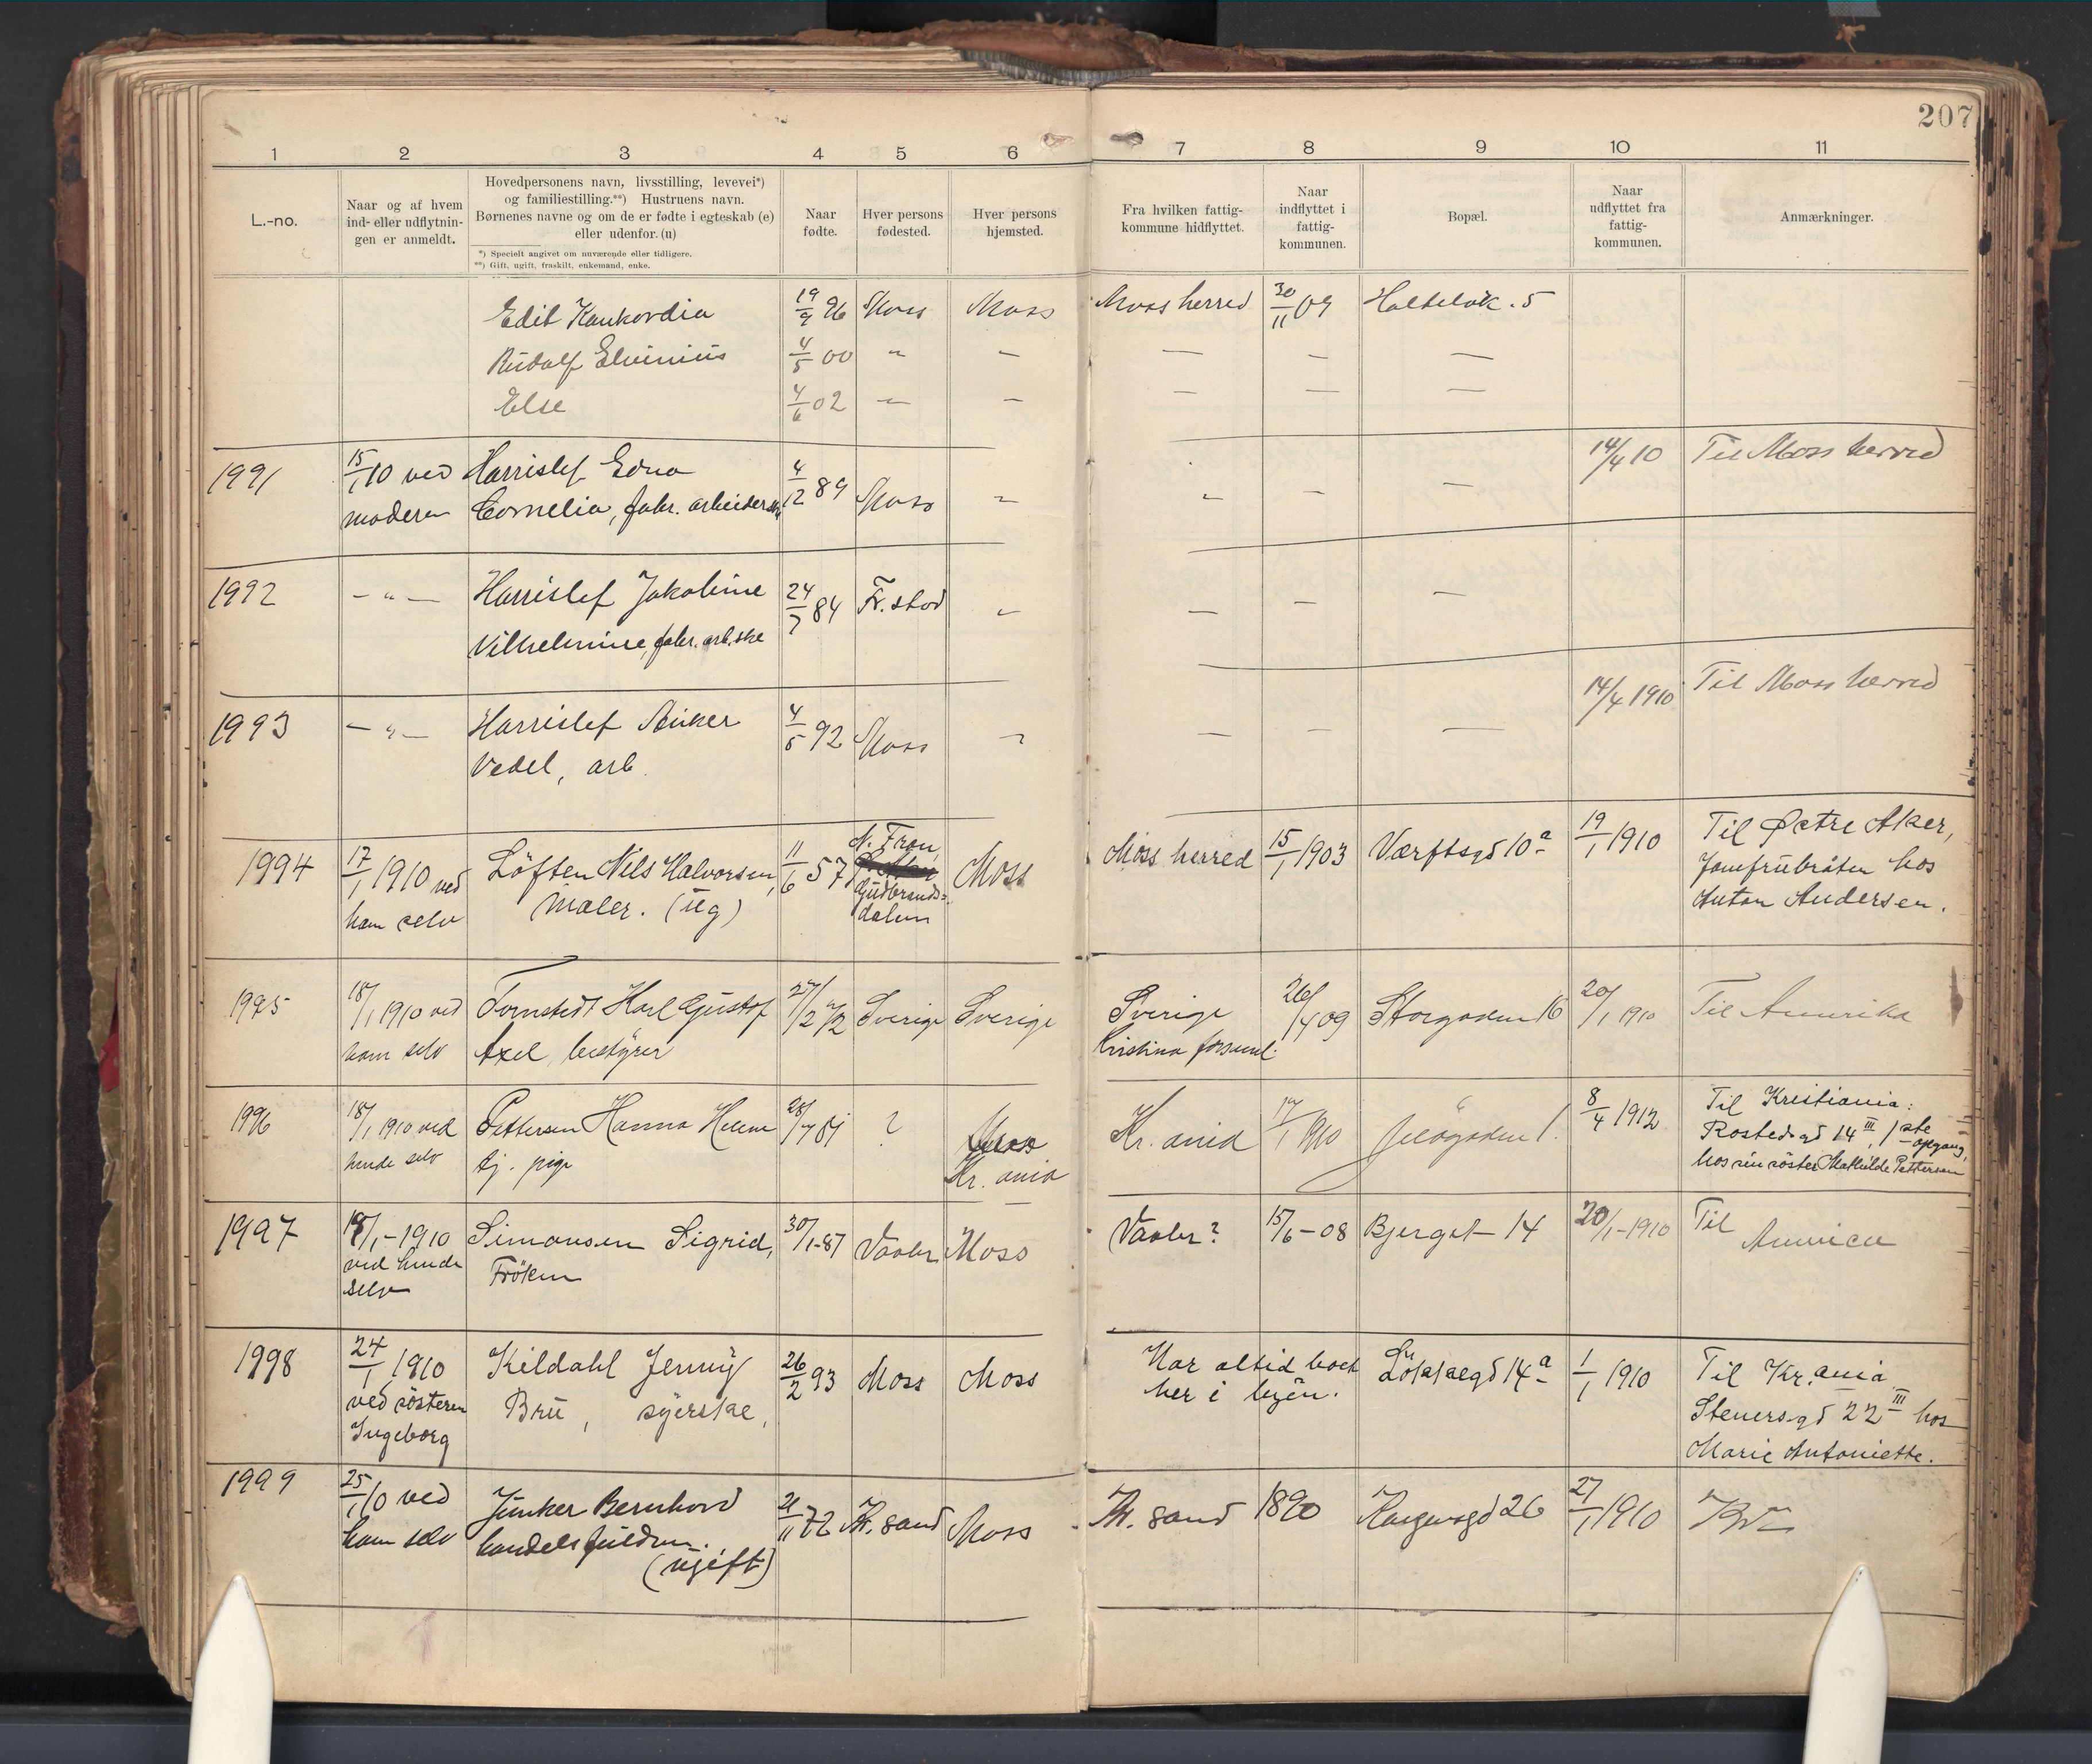 207
1 2 3 4 5 6 7 8 9 10 11
L.-no.
Naar og af hvem
ind- eller udflytnin-
gen er anmeldt.
Hovedpersonens navn, livsstilling, levevei*)
og familiestilling.**) Hustruens navn.
Børnenes navne og om de er fødte i egteskab (e)
eller udenfor. (u)
*) Specielt angivet om nuværende eller tidligere.
**) Gift, ugift, fraskilt, enkemand, enke.
Naar
fødte.
Hver persons
fødested.
Hver persons
hjemsted.
Fra hvilken fattig-
kommune hidflyttet.
Naar
indflyttet i
fattig-
kommunen.
Bopæl.
Naar
udflyttet fra
fattig-
kommunen.
Anmærkninger.
Edit Konkordia 19/9 96 Moss Moss Moss herred 30/11 09 Holteløk. 5
Rudolf Elvinius 4/5 00 " — — — —
Else 4/6 02 — — — — —
1991 15/1 10 ved Harrislef Edna 4/12 89 Moss " " — — 14/4 10 Til Moss herred
moderen Cornelia, fabr. arbeiderske
1992 — " — Harrislef Jakobine 24/7 84 Fr.stad " — — —
Vilhelmine, fabr. arb.ske
1993 — " — Harrislef Anker 4/5 92 Moss " — — — 14/4 1910 Til Moss herred
Vedel, arb.
1994 17/1 1910 ved Löften Nils Halvorsen, 11/6 57 N. Fron, Moss Moss herred 15/1 1903 Værftsgd 10 a 19/1 1910 Til Østre Aker,
ham selv Maler. (ug) Gudbrands=
dalen
Jomfrubråten hos
Anton Andersen.
1995 18/1 1910 ved Tornstedt Karl Gustaf 27/2 72 Sverige Sverige Sverige 26/4 09 Storgaden 16 20/1 1910 Til Amerika
ham selv Axel, bestyrer Kristina forsaml.
1996 18/1 1910 ved Pettersen Hanna Helene 28/4 81 ? Moss Kr.ania 17/1 1910 Jeløgaden 1. 8/4 1912 Til Kristiania:
hende selv tj. pige Kr. ania
Rostedsgd 14 III, 1ste
opgang,
hos sin söster Mathilde Pettersen
1997 18/1-1910 Simonsen Sigrid, 30/1-87 Vaaler Moss Vaaler? 15/6-08 Bjerget 14 20/1-1910 Til
ved hende Fröken America
selv
1998 24/1 1910 Kildahl Jenny 26/2 93 Moss Moss Har altid boet Løkkegd 14 a 1/1 1910 Til Kr.ania
ved søsteren Bru, syerske, her i byen.
Ingeborg
Stenersgd 22 III hos
Marie Antoniette.
1999 25/1 10 ved Junker Bernhard 21/11 72 Kr.sand Moss Kr.sand 1890 Kongensgd 26 27/1 1910
ham selv handelsfuldm.
(ugift)